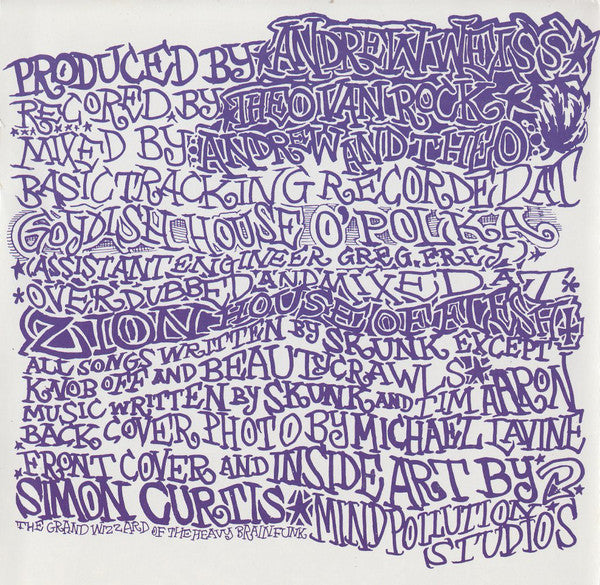 PRODUCED BY ANDREW WEISS
RECORED BY THEO VAN ROCK
MIXED BY ANDREW AND THEO
BASIC TRACKING RECORDED AT
GOYDISH HOUSE O' POLKA
(ASSISTANT ENGINEER GREG FREJ)
OVERDUBBED AND MIXED AT
ZION HOUSE OF FLESH
ALL SONGS WRITTEN BY SKUNK EXCEPT
KNOB OFF AND BEAUTY CRAWLS
MUSIC WRITTEN BY SKUNK AND TIM AARON
BACK COVER PHOTO BY MICHAEL LAVINE
FRONT COVER AND INSIDE ART BY
SIMON CURTIS MIND POLLUTION STUDIOS
THE GRAND WIZZARD OF THE HEAVY BRAINFUNK